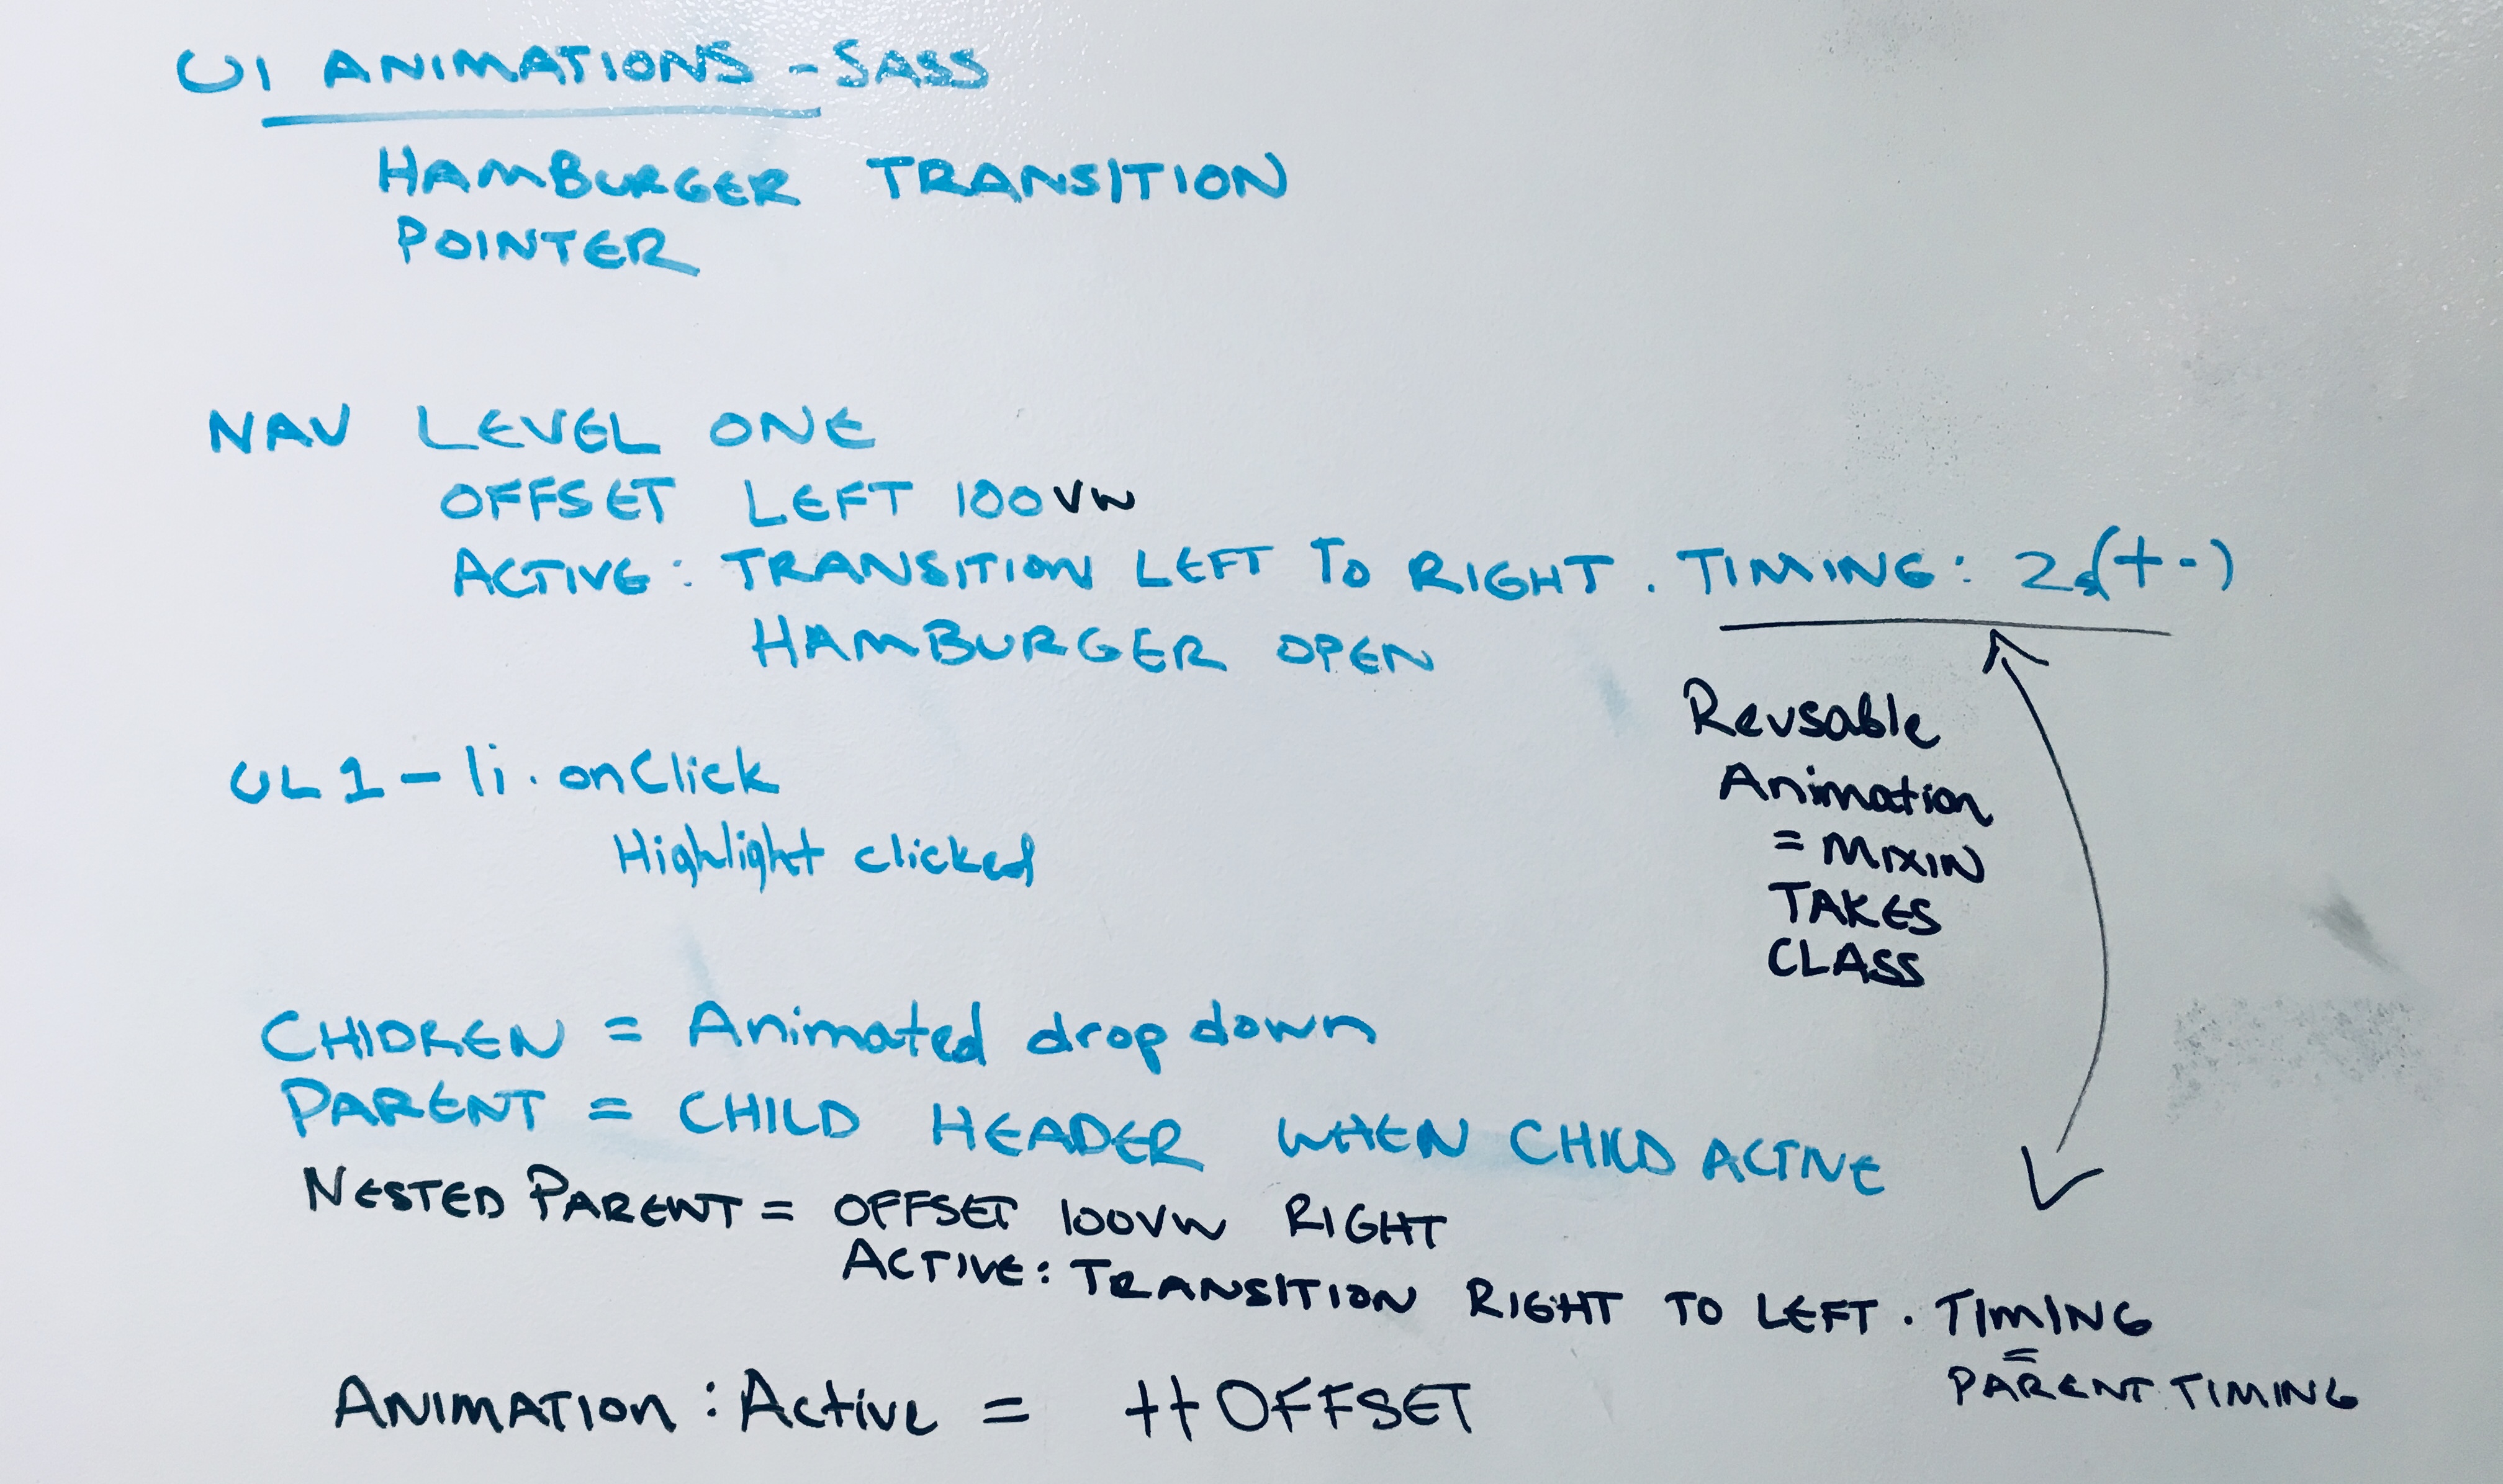 UI ANIMATIONS - SASS
HAMBURGER TRANSITION
POINTER
NAV LEVEL ONE
OFFSET LEFT 100VW
ACTIVE: TRANSITION LEFT TO RIGHT. TIMING: 2s(+-)
HAMBURGER OPEN
Reusable
Animation
= MIXIN
TAKES
CLASS
UL 1 - li.onClick
Highlight clicked
CHIDREN = Animated drop down
PARENT = CHILD HEADER WHEN CHILD ACTIVE
NESTED PARENT = OFFSET 100VW RIGHT
ACTIVE: TRANSITION RIGHT TO LEFT. TIMING
= PARENT TIMING
ANIMATION: Active = ++ OFFSET